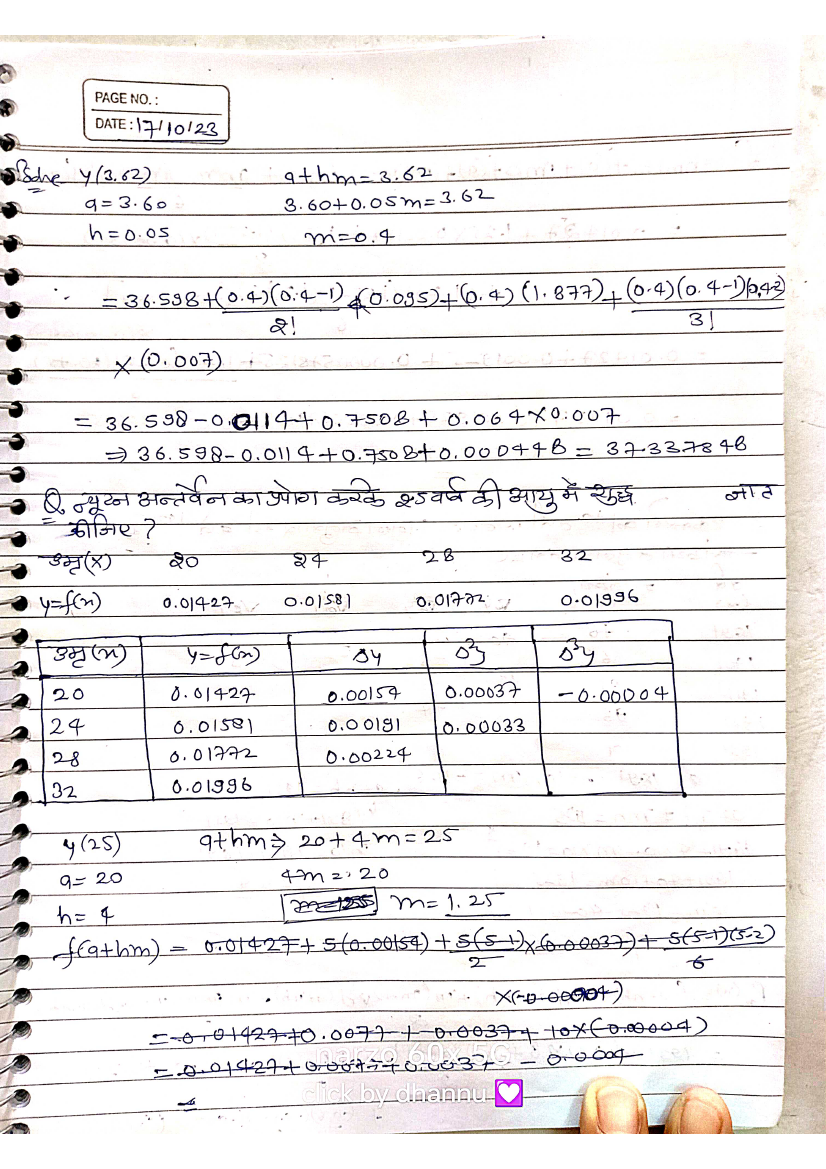 PAGE NO.:
DATE: 17/10/23
Solve y(3.62) a+hm=3.62
a=3.60 3.60+0.05m=3.62
h=0.05 m=0.4
=36.598+(0.4)(0.4-1)/2! (0.095)+(0.4)(1.877)+(0.4)(0.4-1)(0.4-2)/3!
×(0.007)
= 36.598-0.0114+0.7508+0.064×0.007
⇒36.598-0.0114+0.7508+0.000448 = 37.337848
Q. न्यूटन अन्तर्वेन का उपोग करके 25 वर्ष की आयु में शुद्ध ज्ञात
कीजिए ?
उम्र(x) 20 24 28 32
y=f(x) 0.01427 0.01581 0.01772 0.01996
उम्र(x) y=f(x) Δy Δ²y Δ³y
20 0.01427 0.00154 0.00037 -0.00004
24 0.01581 0.00191 0.00033
28 0.01772 0.00224
32 0.01996
y(25) a+hm⇒ 20+4m=25
a=20 4m=.20
h=4 m=1.25
f(a+hm) = 0.01427+5(0.00154)+5(5-1)/2×(0.00037)+5(5-1)(5-2)/6
×(-0.00004)
=0.01427+0.0077+0.0037+10×(-0.00004)
=0.01427+0.0077+0.0037-0.0004
=
narzo 60x 5G
click by dhannu 💟